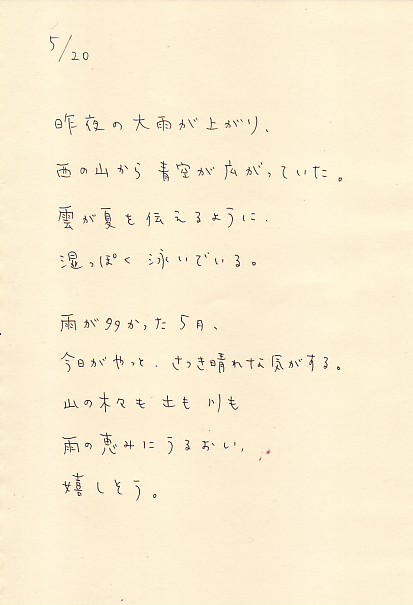 5/20
昨夜の大雨が上がり、
西の山から青空が広がっていた。
雲が夏を伝えるように、
湿っぽく泳いでいる。
雨が多かった5月、
今日がやっと、さつき晴れな気がする。
山の木々も土も川も
雨の恵みにうるおい、
嬉しそう。